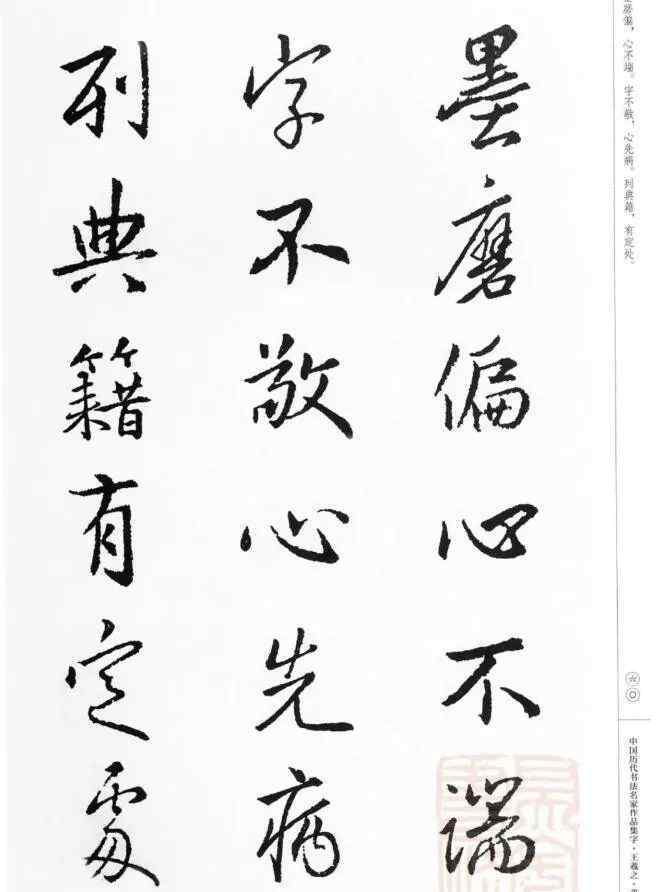 墨磨偏心不端
字不敬心先病
列典籍有定處
磨偏，心不端。字不敬，心先病。列典籍，有定处。
六〇
中国历代书法名家作品集字·王羲之·